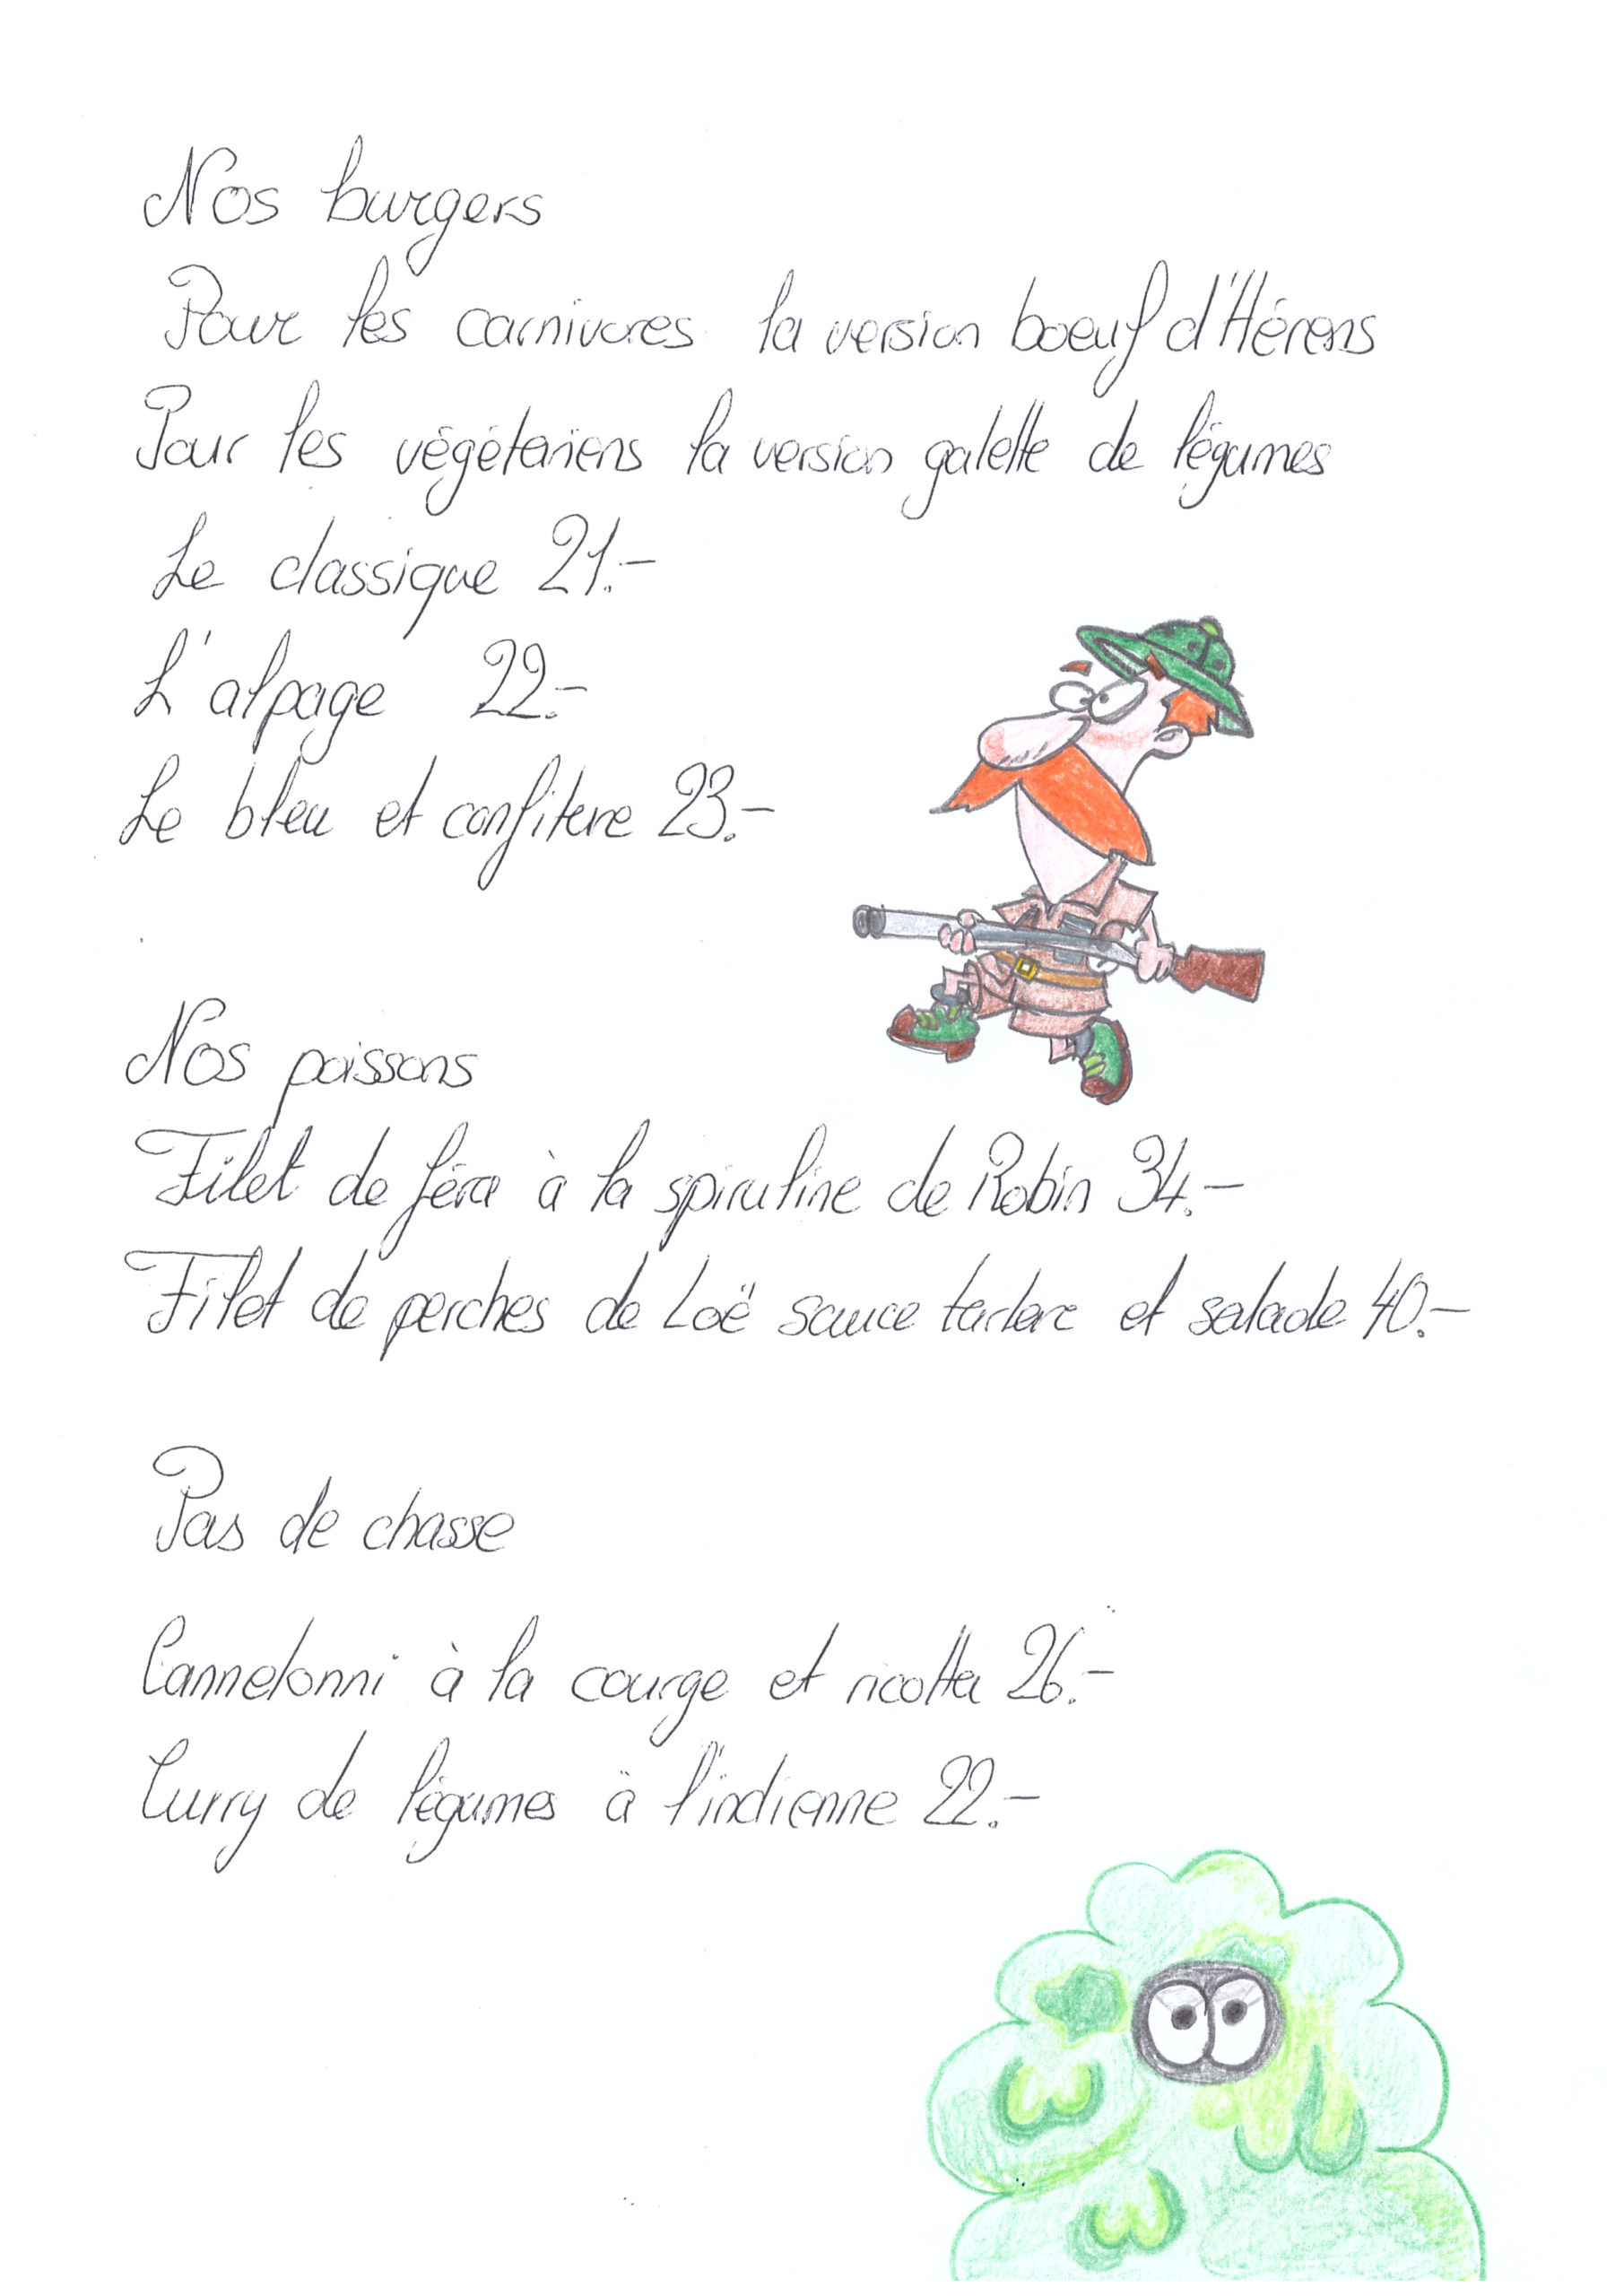 Nos burgers
Pour les carnivores la version boeuf d'Hérens
Pour les végétariens la version galette de légumes
Le classique 21.-
L'alpage 22.-
Le bleu et confiture 23.-
Nos poissons
Filet de féra à la spiruline de Robin 34.-
Filet de perches de Loë sauce tartare et salade 40.-
Pas de chasse
Cannelonni à la courge et ricotta 26.-
Curry de légumes à l'indienne 22.-